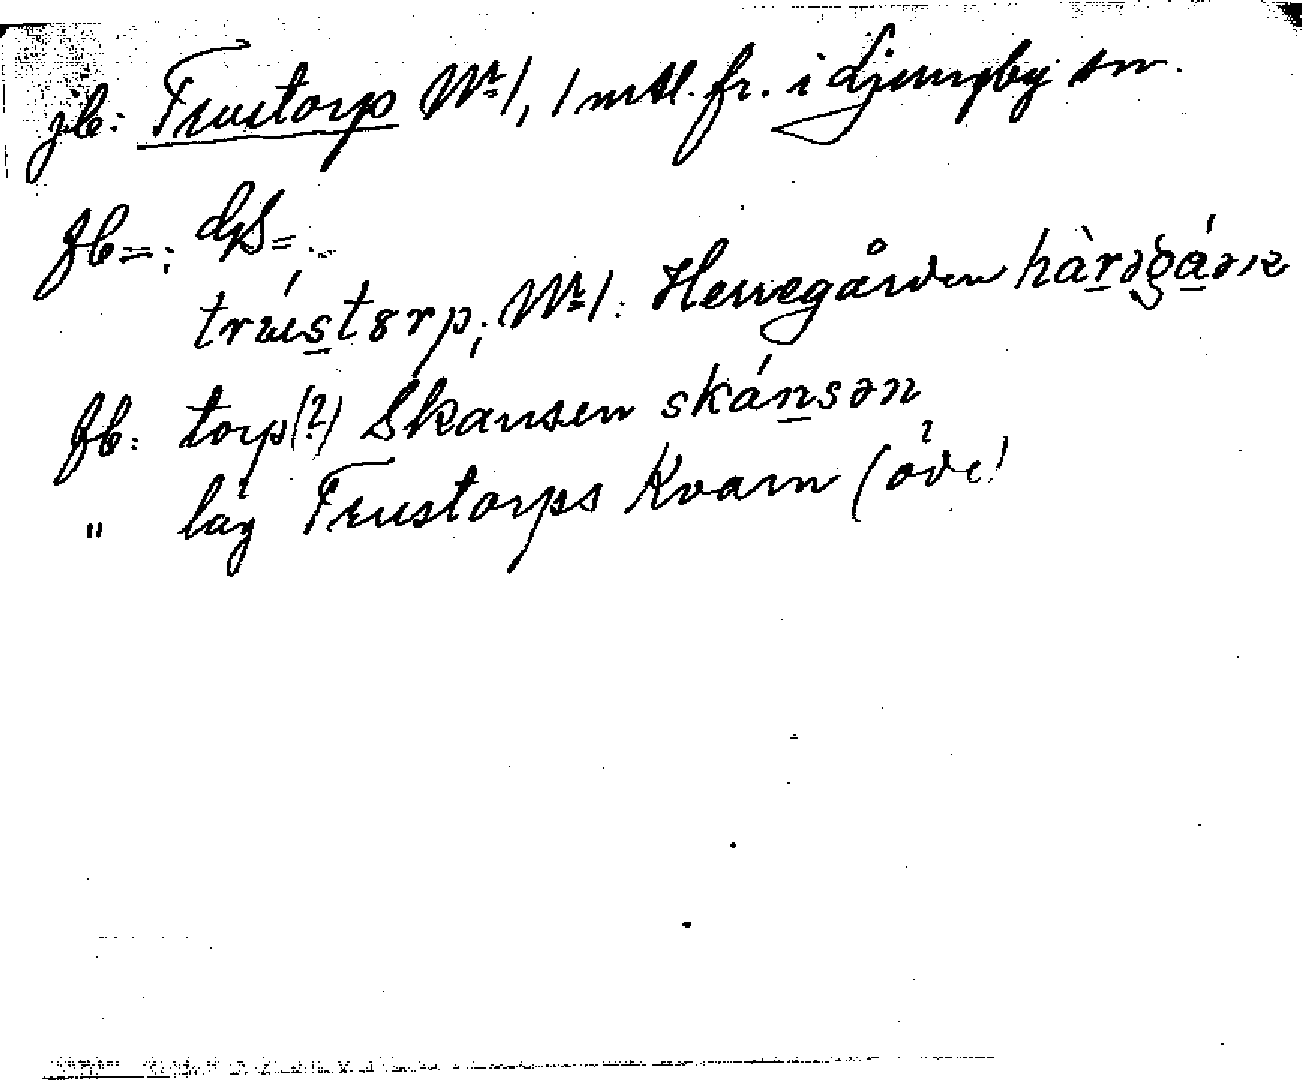 jb: Trustorp Nr 1, 1 mtl. fr. i Ljungby sn.
fb=: dρS=
trústorp; Nr 1: Herregården hàrəgáən
fb: torp(?) Skansen skánsən
" låg Trustorps Kvarn (öde)